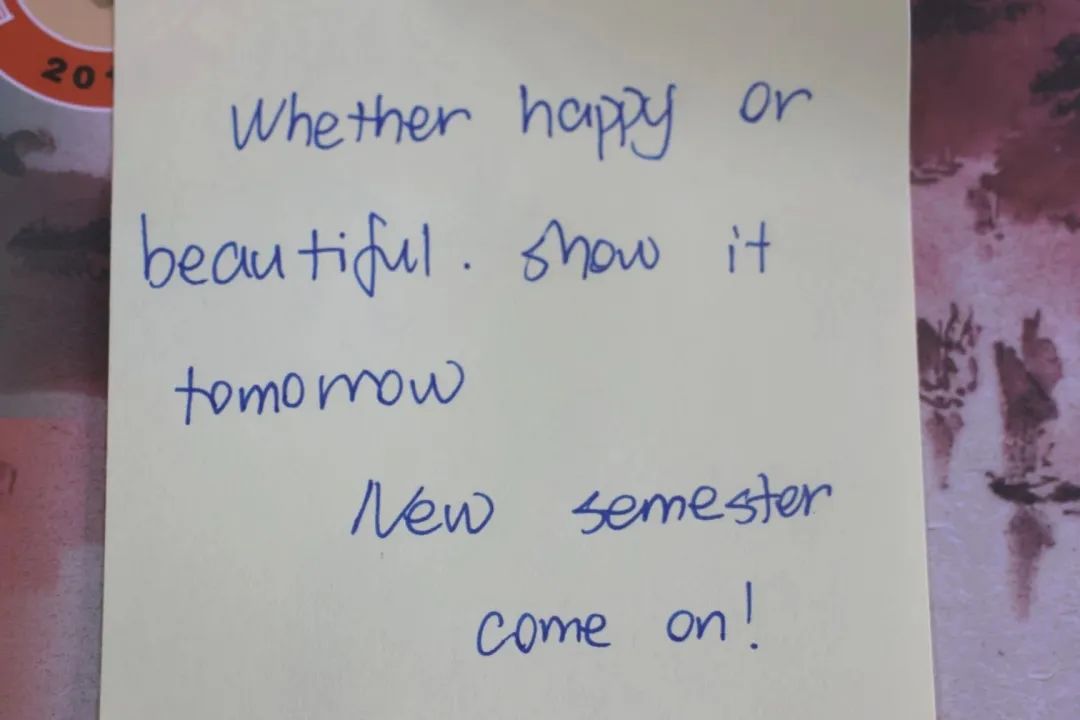 20
Whether happy or
beautiful. show it
tomorrow
New semester
come on!